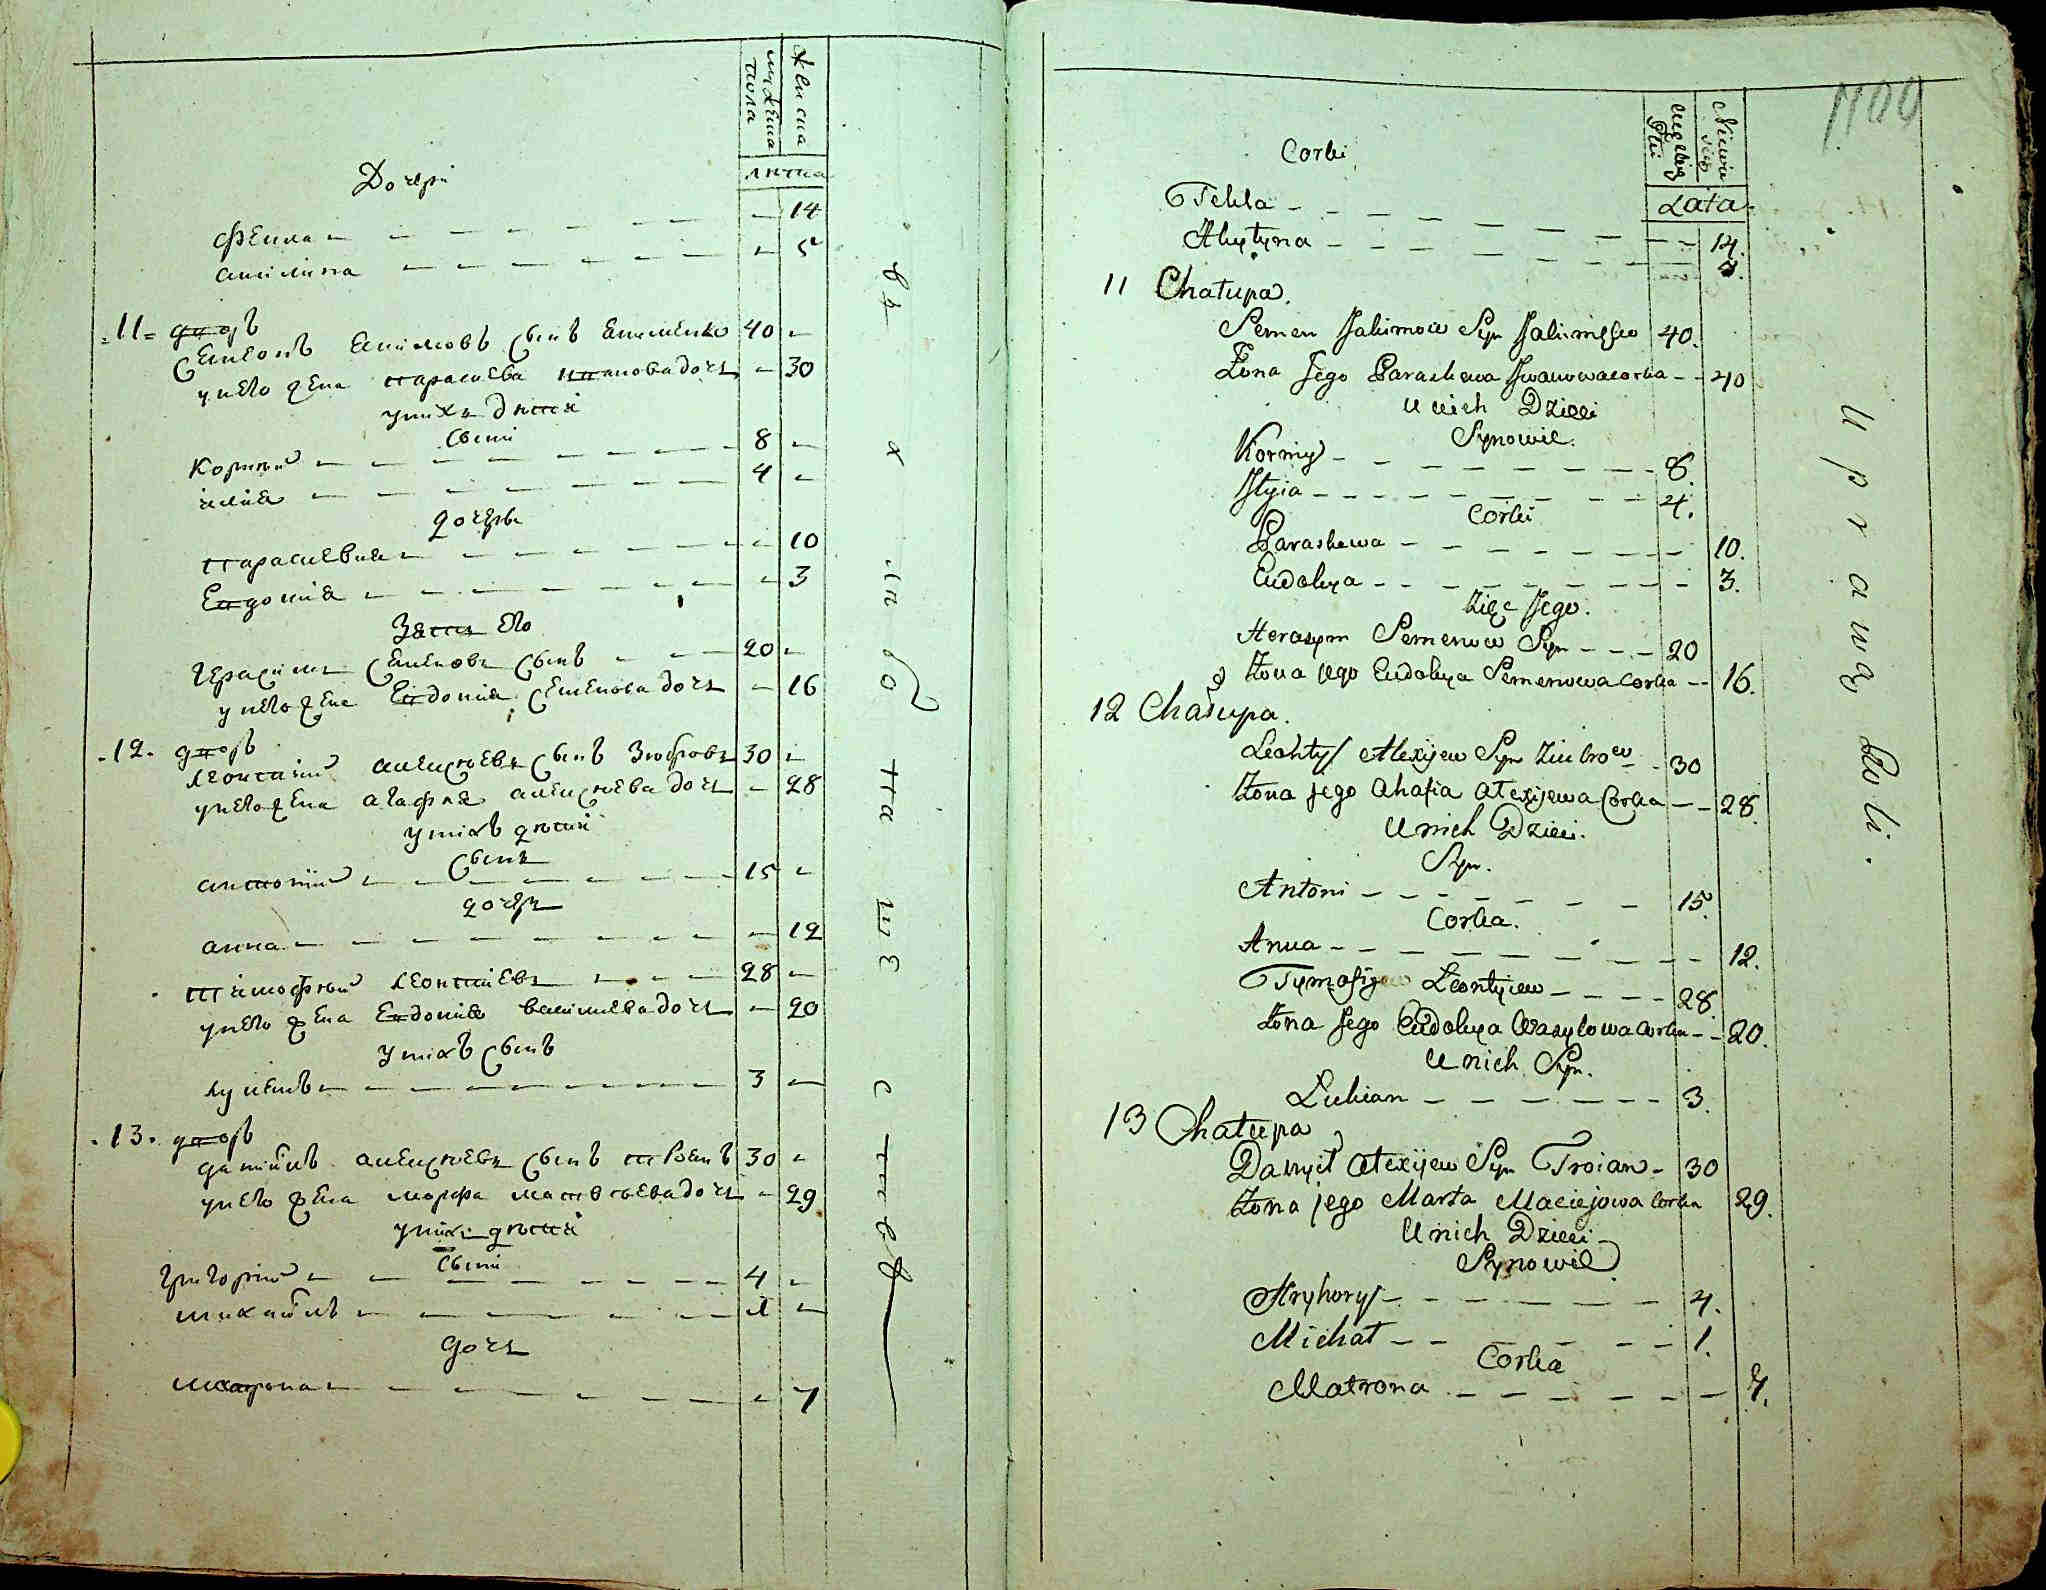 мужеска
пола
женска
лѣта
Дочери
Фекла — 14
акилина — 5
11 дворъ
Семенъ Екимовъ сынъ Екименко 40 —
у него жена параскева Ивановa дочь — 30
у нихъ дѣти
сыни
Корнѣй — 8 —
илія — 4 —
дочери
параскевия — 10
Евдокия — 3
Зять его
Герасимъ Семеновъ сынъ — 20 —
у него жена Евдокия Семенова дочь — 16
12. дворъ
леонтий алексѣевъ сынъ Зюбровъ 30 —
у него жена агафия алексѣева дочь — 28
у нихъ дѣти
сынъ
антоній — 15 —
дочерь
анна — 12
тимофѣй леонтиевъ — 28 —
у него жена Евдокия василиева дочь — 20
у нихъ сынъ
лукянъ — 3 —
13. дворъ
данiилъ алексѣевъ сынъ троянъ 30 —
у него жена марфа матвѣева дочь — 29
у нихъ дѣти
сыни
григорий — 4 —
михаилъ — 1 —
дочь
матрона — 7
въ хлѣбопашествѣ
1100
Męskiey
Płci
Niewie
Lata
Corki
Tekla — 14.
Akylyna —
11 Chałupa.
Semen Jakimow Syn Jakimenko 40.
Żona Jego Paraskewa Iwanowa corka — 40
U nich Dzieci
Synowie.
Korniy — 8.
Ilyia — 4.
Corki
Paraskewa — 10.
Eudokya — 3.
Zięć Jego.
Herasym Semenow Syn — 20
Żona jego Eudokya Semenowa corka — 16.
12 Chałupa.
Leontyj Alexijew Syn Ziubrow — 30
Żona jego Ahafia Alexijewa Corka — 28.
U nich Dzieci.
Syn.
Antoni — 15.
Corka.
Anna — 12.
Tymofij Leontyiew — 28.
Żona Jego Eudokya Wasylowa Corka — 20.
U nich Syn.
Lukian — 3.
13 Chałupa
Danyił Alexijew Syn Troian — 30
Żona jego Marta Maciejowa Corka 29.
U nich Dzieci
Synowie
Hryhoryj — 4.
Michał — 1.
Corka
Matrona — 7.
Uprawą Roli.